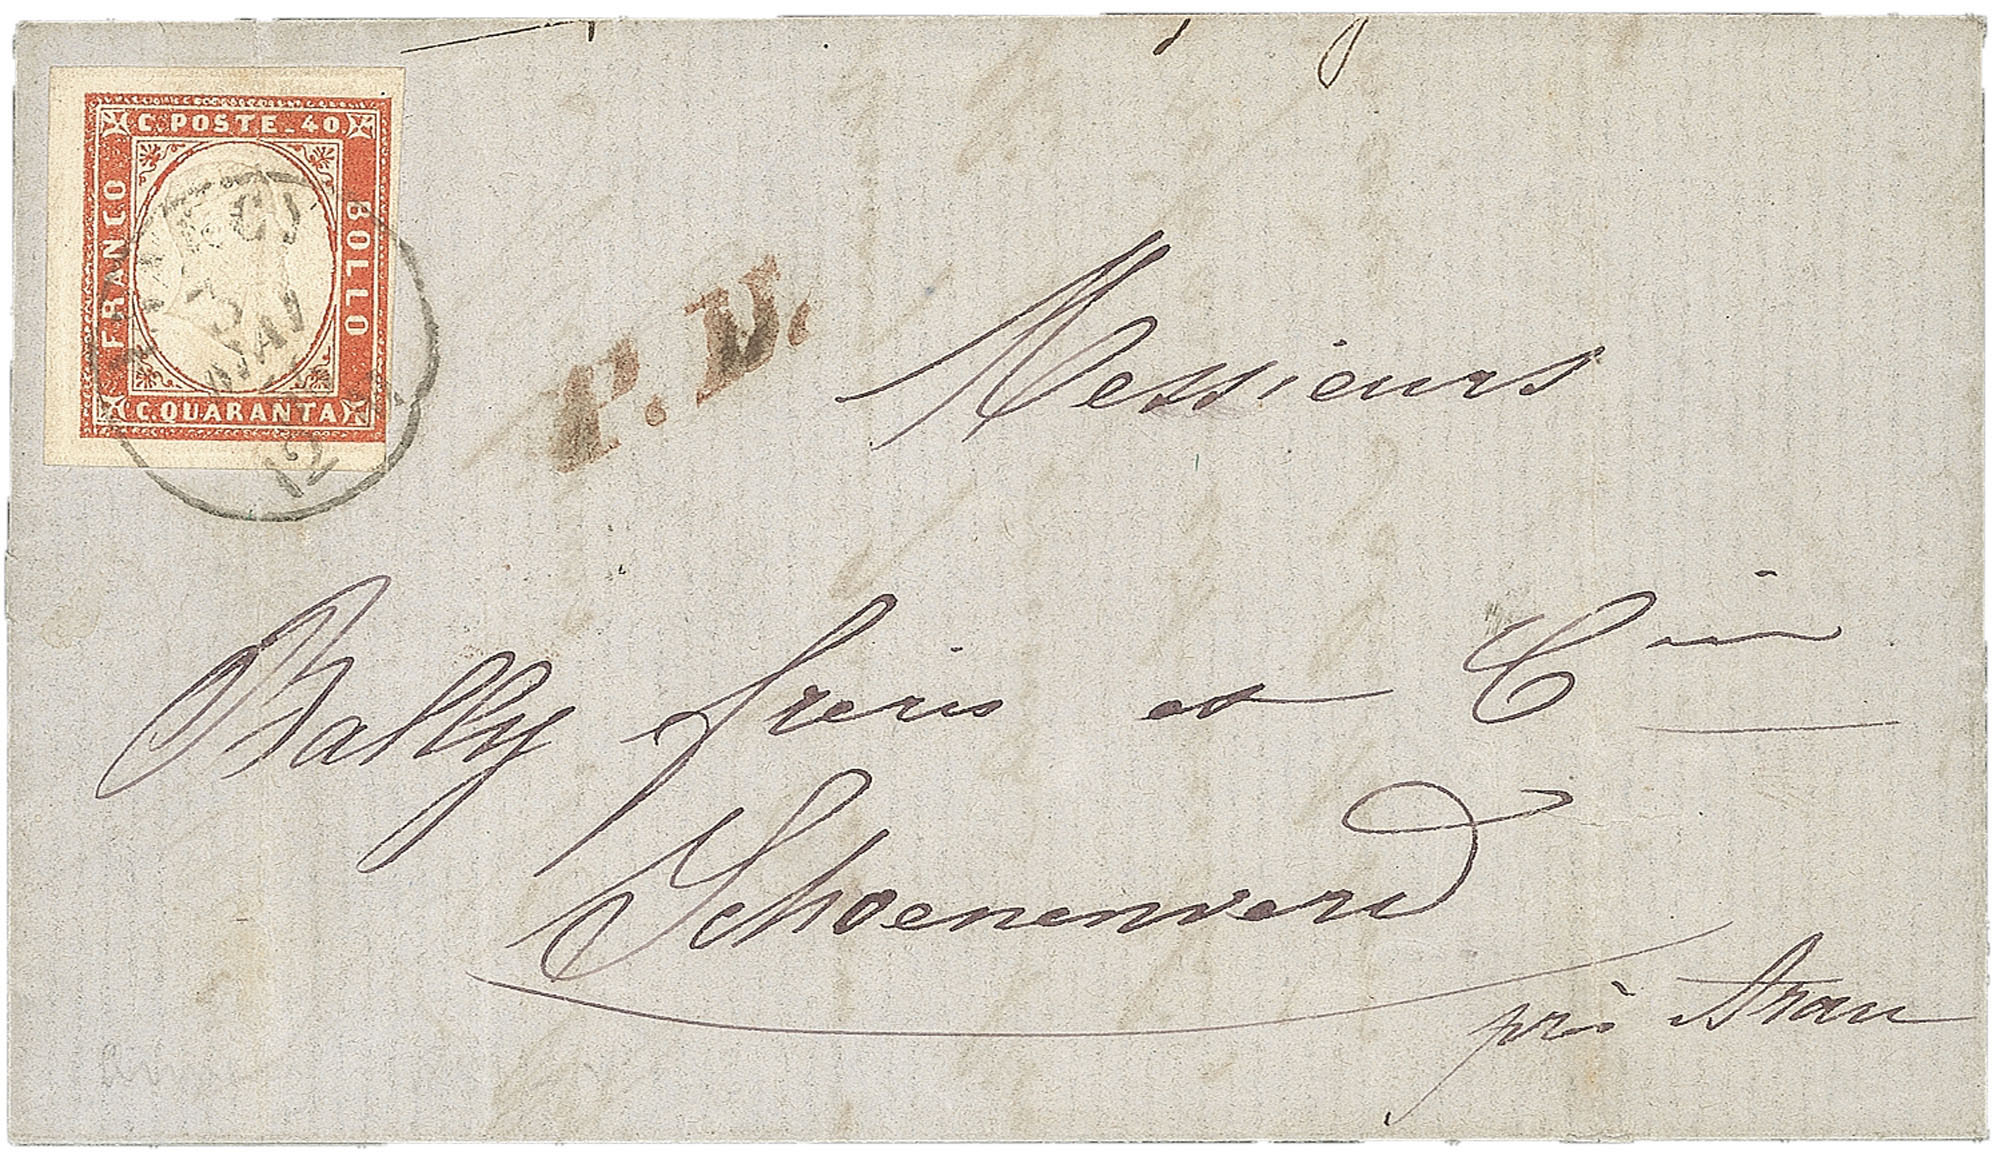 C. POSTE. 40
FRANCO
BOLLO
C. QUARANTA
3
MAI
12
P.D.
Messieurs
Bally freres et Cie
Schoenenwerd
près Arau